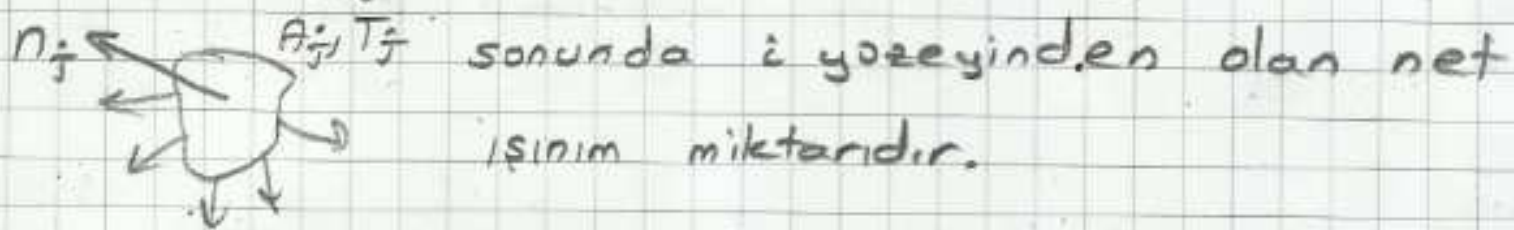 n_j A_j, T_j sonunda i yüzeyinden olan net
ışınım miktarıdır.